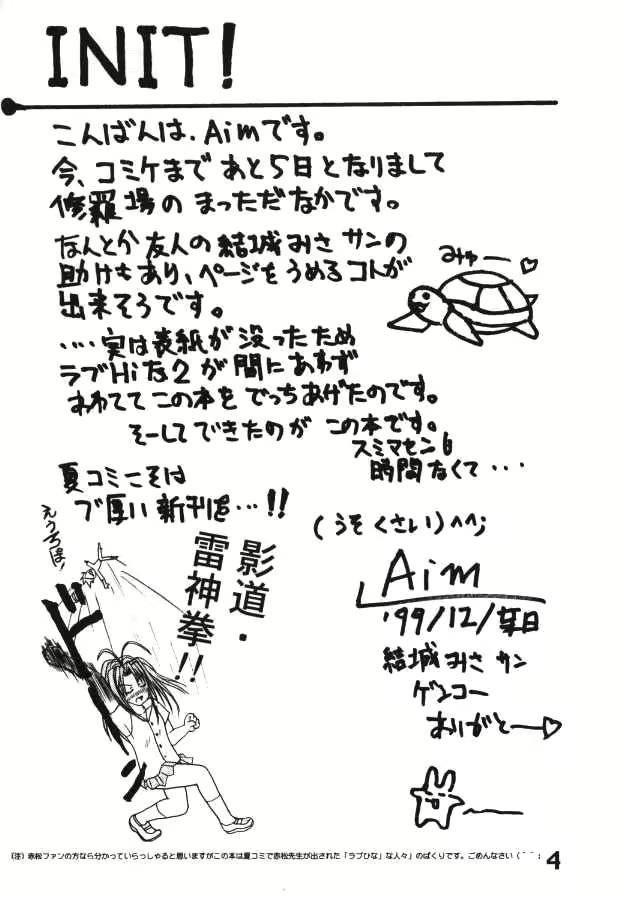 INIT!
こんばんは、Aimです。
今、コミケまであと5日となりまして
修羅場のまっただなかです。
なんとか友人の結城みさサンの
助けもあり、ページをうめるコトが
出来そうです。
みゅー♡
‥‥実は表紙が没ったため
ラブHiな2が間にあわず
あわててこの本をでっちあげたのです。
そーしてできたのがこの本です。
スミマセン6
時間なくて・・・
夏コミこそは
ブ厚い新刊を…!!
(うそくさい)^^;
えうちぱ!
影道・
雷神拳!!
ドーン
Aim
'99/12/某日
結城みさサン
ゲンコー
ありがとー♡
(注)赤松ファンの方なら分かっていらっしゃると思いますがこの本は夏コミで赤松先生が出された「ラブひな」な人々」のぱくりです。ごめんなさい(^^;
4